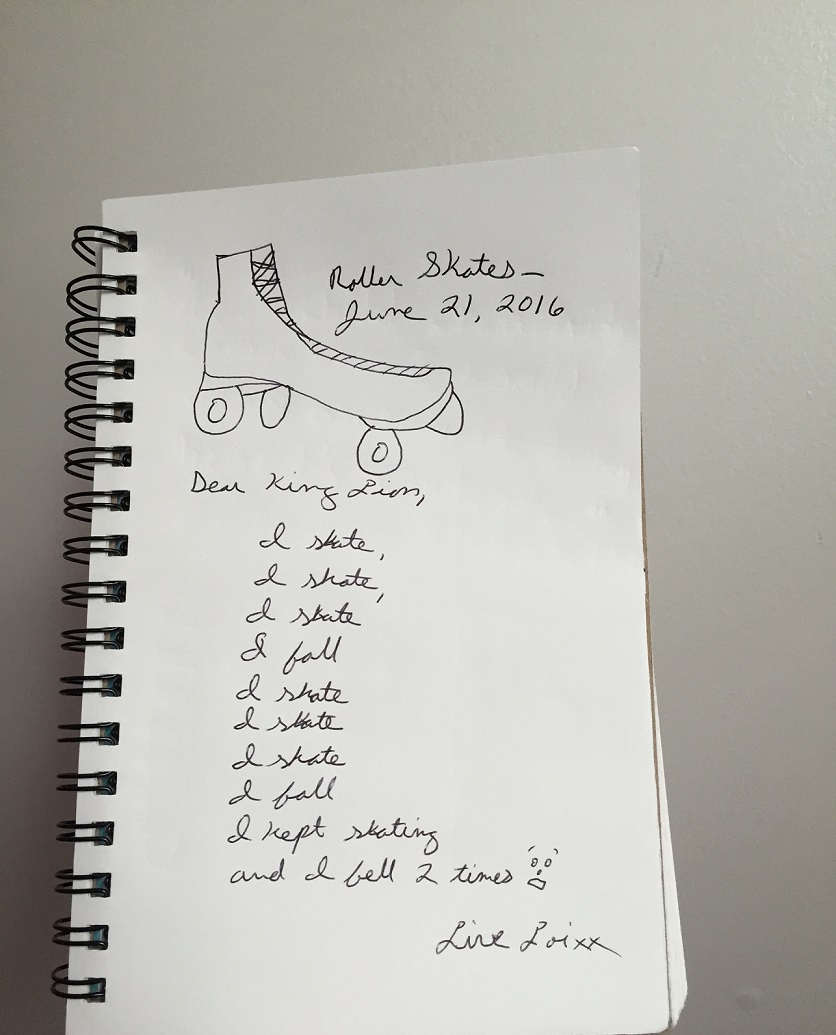 Roller Skates—
June 21, 2016
Dear King Lion,
I skate,
I skate,
I skate
I fall
I skate
I skate
I skate
I fall
I kept skating
and I fell 2 times